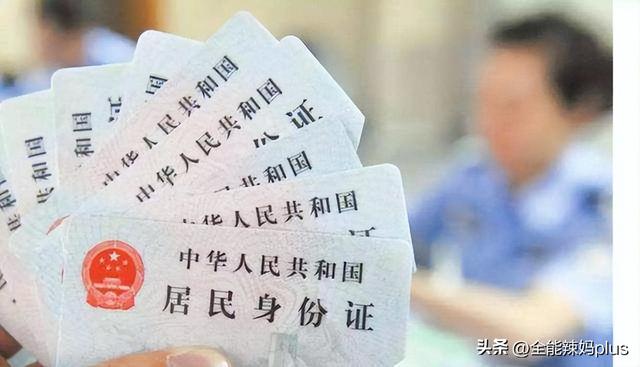 证
中华人民共和国
中华人民共和国
证
中华人民共和国
中华人民共和国
中华人民共和国
居民身份证
头条 @全能辣妈plus